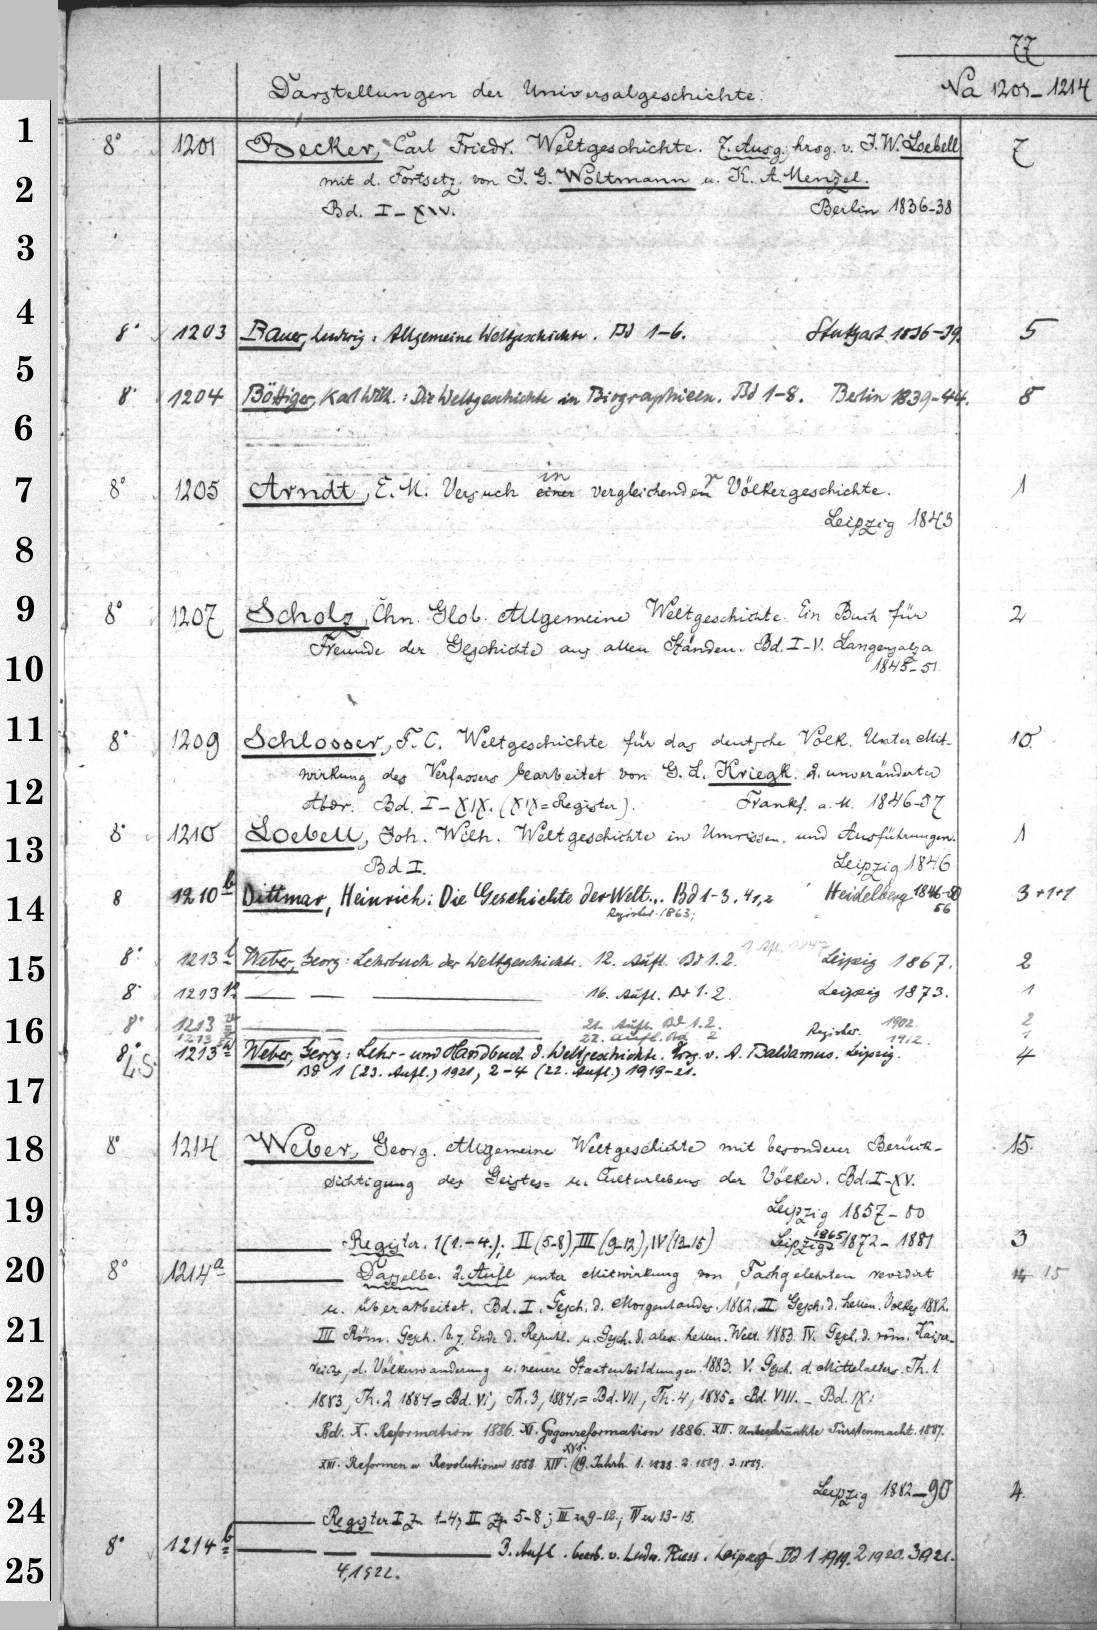 77
Darstellungen der Universalgeschichte.
Na 1201-1214
1
8° 1201 Becker, Carl Friedr. Weltgeschichte. 7. Ausg. hrsg. v. J. W. Loebell 7
2
mit d. Fortsetz. von J. G. Woltmann u. K. A. Menzel.
Bd. I-XIV. Berlin 1836-38
3
4
8° 1203 Bauer, Ludwig: Allgemeine Weltgeschichte. Bd 1-6. Stuttgart 1836-39. 5
5
8° 1204 Böttiger, Karl Wilh.: Die Weltgeschichte in Biographieen. Bd 1-8. Berlin 1839-44. 8
6
in
7
8° 1205 Arndt, E. M. Versuch einer vergleichenden Völkergeschichte. 1
Leipzig 1843
8
9
8° 1207 Scholz, Chn. Glob. Allgemeine Weltgeschichte. Ein Buch für 2
Freunde der Geschichte aus allen Ständen. Bd. I-V. Langensalza
10
1845-51.
11
8° 1209 Schlosser, F. C. Weltgeschichte für das deutsche Volk. Unter Mit- 10
wirkung des Verfassers bearbeitet von G. L. Kriegk. 2. unveränderter
12
Abdr. Bd. I-XIX. (XIX=Register). Frankf. a. M. 1846-57
8° 1210 Loebell, Joh. Wilh. Weltgeschichte in Umrissen und Ausführungen. 1
13
Bd I. Leipzig 1846
8 1210b Dittmar, Heinrich: Die Geschichte der Welt... Bd 1-3. 4,1,2 Heidelberg 1846- 3+1+1
14
Register 1863; 56
1847
15
8° 1213 Weber, Georg: Lehrbuch der Weltgeschichte. 12. Aufl. Bd 1.2. Leipzig 1867. 2
8° 1213 — — — 16. Aufl. Bd 1.2. Leipzig 1873. 1
16
8° 1213 21. Aufl. Bd 1.2. Register. 1902 2
1213 22. Aufl. Bd 2 1912. 1
8° 1213 Weber, Georg: Lehr- und Handbuch d. Weltgeschichte. Hrsg. v. A. Baldamus. Leipzig. 4
L.S. Bd 1 (23. Aufl.) 1921, 2-4 (22. Aufl.) 1919-21.
17
18
8° 1214 Weber, Georg. Allgemeine Weltgeschichte mit besonderer Berück- 15.
sichtigung des Geistes= u. Culturlebens der Völker. Bd. I-XV.
19
Leipzig 1857-80
Register. I (1.-4.); II (5-8), III (9-12), IV (13-15) Leipzig 1865 1872-1881 3
20
8° 1214a Dasselbe. 2. Aufl unter Mitwirkung von Fachgelehrten revidirt 15
u. überarbeitet. Bd. I. Gesch. d. Morgenlandes. 1882. II Gesch. d. hellen. Volkes 1882.
21
III Röm. Gesch. bis z. Ende d. Republ. u. Gesch. d. alex. hellen. Welt. 1883. IV. Gesch. d. röm. Kaiser-
reichs, d. Völkerwanderung u. neuere Staatenbildungen. 1883. V. Gesch. d. Mittelalters. Th. 1.
22
1883, Th. 2 1884= Bd. VI, Th. 3, 1884,= Bd. VII, Th. 4, 1885= Bd. VIII. - Bd. IX:
Bd. X. Reformation 1886. XI. Gegenreformation 1886. XII. Unbeschränkte Fürstenmacht. 1887.
23
XIII. Reformen u Revolutionen 1888 XIV. XV: (19. Jahrh. 1. 1888. 2. 1889. 3. 1889.
Leipzig 1882-90 4.
24
Register I zu 1-4; II zu 5-8; III zu 9-12; IV zu 13-15.
8° 1214b — — — 3. Aufl. bearb. v. Ludw. Riess. Leipzig Bd 1 1919. 2 1920. 3 1921.
25
4, 1922.